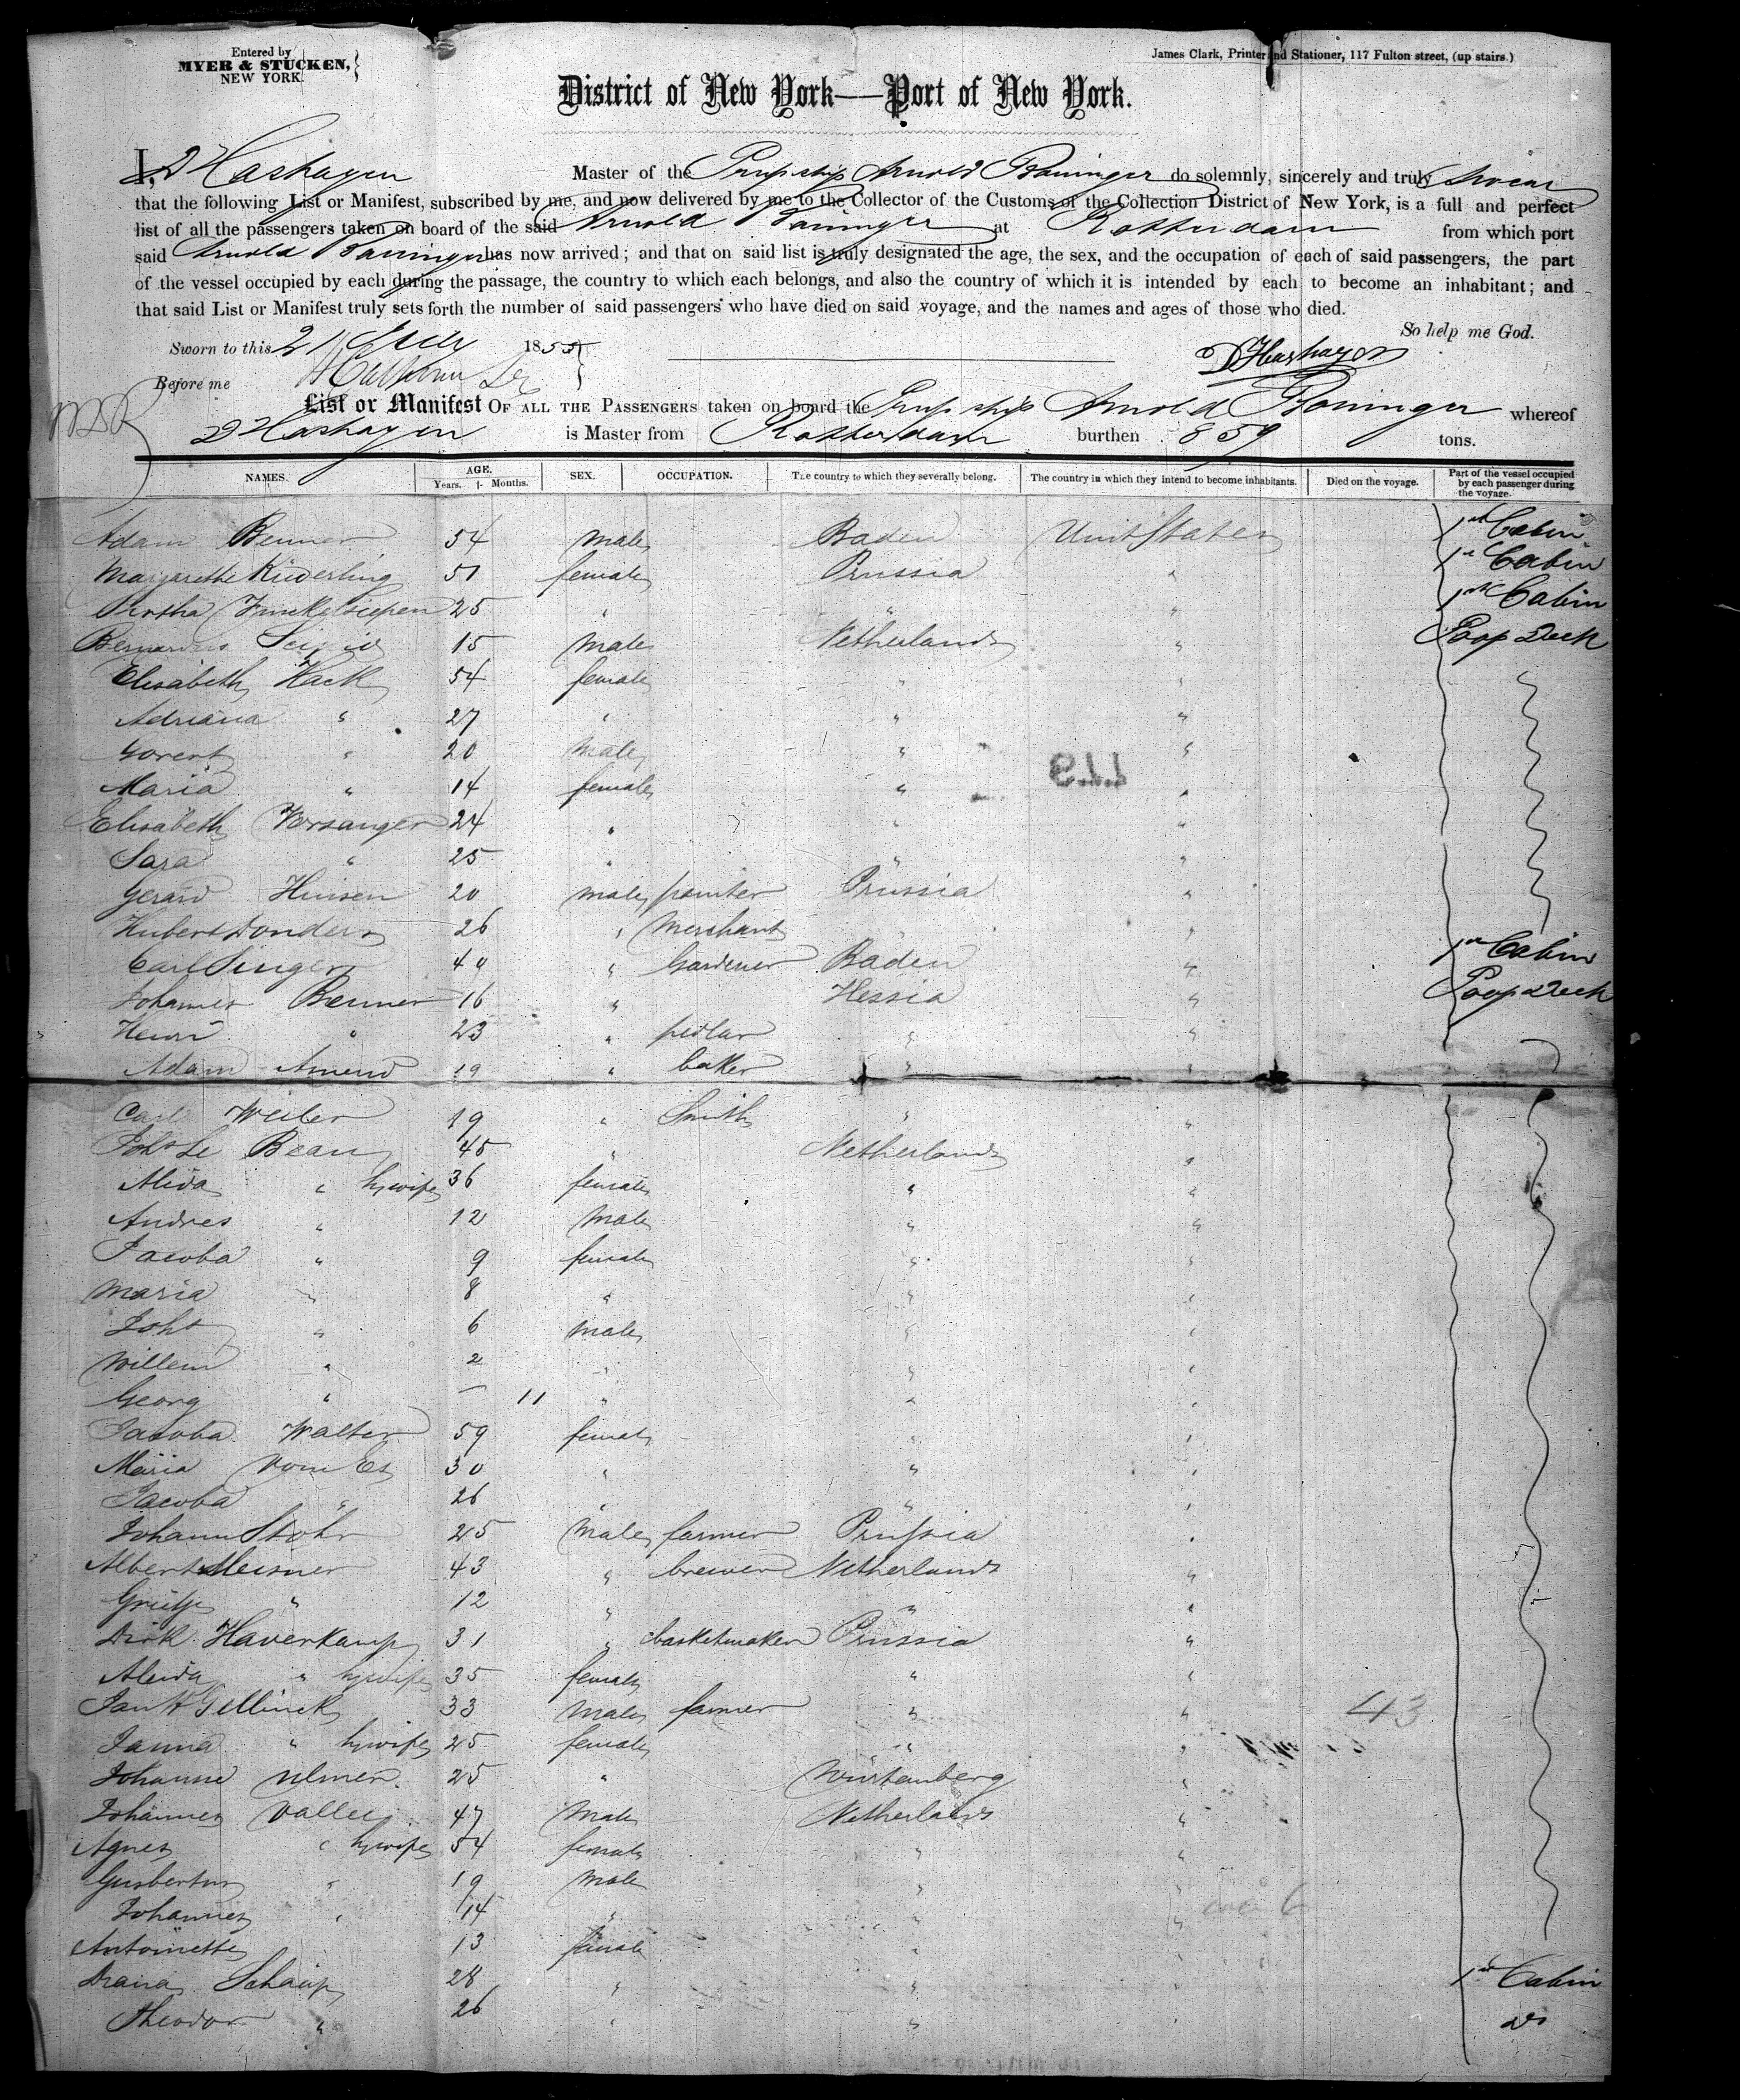 Entered by
MYER & STUCKEN,
NEW YORK.
James Clark, Printer and Stationer, 117 Fulton street, (up stairs.)
District of New York—Port of New York.
I, D Hashagen Master of the Prus ship Arnold Boninger do solemnly, sincerely and truly swear
that the following List or Manifest, subscribed by me, and now delivered by me to the Collector of the Customs of the Collection District of New York, is a full and perfect
list of all the passengers taken on board of the said Arnold Boninger at Rotterdam from which port
said Arnold Boninger has now arrived; and that on said list is truly designated the age, the sex, and the occupation of each of said passengers, the part
of the vessel occupied by each during the passage, the country to which each belongs, and also the country of which it is intended by each to become an inhabitant; and
that said List or Manifest truly sets forth the number of said passengers who have died on said voyage, and the names and ages of those who died.
So help me God.
Sworn to this 21 July 1855
D Hashagen
Before me
List or Manifest OF ALL THE PASSENGERS taken on board the Prus ship Arnold Boninger whereof
D Hashagen is Master from Rotterdam burthen 859 tons.
NAMES. AGE. Years. Months. SEX. OCCUPATION. The country to which they severally belong. The country in which they intend to become inhabitants. Died on the voyage. Part of the vessel occupied by each passenger during the voyage.
Adam Benner 54 male Baden Unit States 1st Cabin
Margarethe Kiederling 51 female Prussia " 1st Cabin
25 " " " 1st Cabin
Bernardus 15 male Netherlands " Poop Deck
Elisabeth Hack 54 female " "
Adriana " 27 " " "
Govert " 20 male " "
Maria " 14 female " "
Elisabeth Vorsanger 24 " " "
Sara " 25 " " "
Gerard Hinsen 20 male painter Prussia "
Hubert Donders 26 " Merchant "
Carl Singer 40 " Gardener Baden " 1st Cabin
Johannes Benner 16 " Hessia " Poop Deck
Henri " 23 " pedlar " "
Adam Amend 19 " baker " "
Carl Weiler 19 " Smith " "
Johs Le Beau 45 " Netherlands "
Alida " hs wife 36 female " "
Andres " 12 male " "
Jacoba " 9 female " "
Maria " 8 " " "
Johs " 6 male " "
Willem " 2 " " "
Georg " — 11 " " "
Jacoba Walter 59 female " "
Maria Vom Es 30 " " "
Jacoba " 26 " " "
Johann Stohr 25 male farmer Prussia "
Albert Meisner 43 " brewer Netherlands "
Grietje " 12 " " "
Dirk Haverkamp 31 " basketmaker Prussia "
Aleida " hs wife 35 female " "
Jan H Gellinck 33 male farmer " " 43
Janna " hs wife 25 female " "
Johanne Ulmer. 25 " Würtemberg "
Johannes Vallee 47 male Netherlands "
Agnes " hs wife 54 female " "
Gusbertus " 19 male " "
Johannes " 14 " " "
Antoinette 13 female " "
Diana Schaup 28 " " " 1st Cabin
Theodor " 26 " " " do